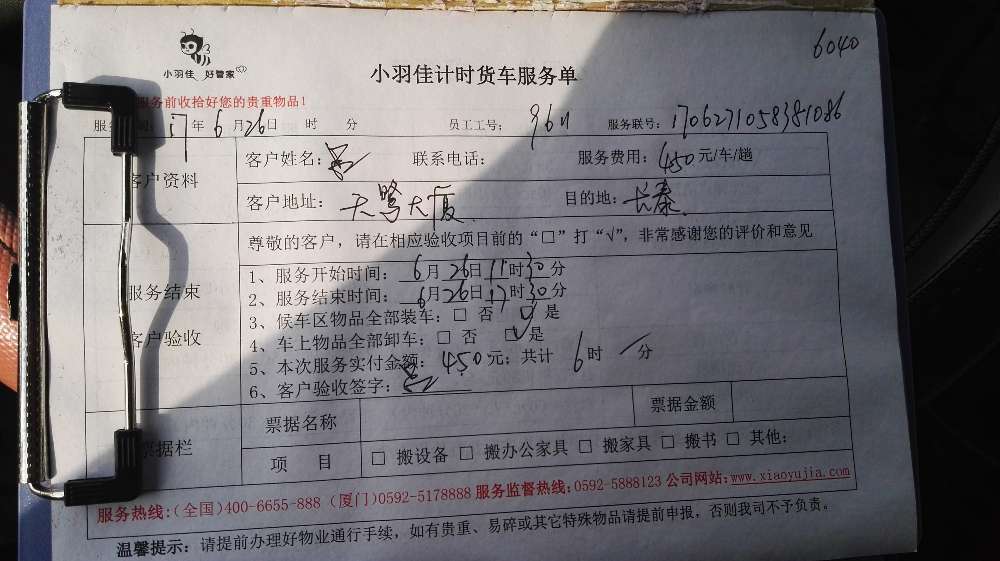 6040
小羽佳 好管家
小羽佳计时货车服务单
服务前收拾好您的贵重物品！
服 间：17年6月26日 时 分 员工工号： 服务联号：1706271058381086
客户资料 客户姓名： 联系电话： 服务费用：450元/车/趟
客户地址：天鹭大厦 目的地：长泰
尊敬的客户，请在相应验收项目前的“□”打“√”，非常感谢您的评价和意见
服务结束
客户验收
1、服务开始时间：6月26日11时30分
2、服务结束时间：6月26日17时30分
3、候车区物品全部装车：□ 否 ☑ 是
4、车上物品全部卸车：□ 否 ☑ 是
5、本次服务实付金额：450元；共计 6时 / 分
6、客户验收签字：
票据栏 票据名称 票据金额
项 目 □ 搬设备 □ 搬办公家具 □ 搬家具 □ 搬书 □ 其他：
服务热线:(全国)400-6655-888 (厦门)0592-5178888 服务监督热线:0592-5888123 公司网站:www.xiaoyujia.com
温馨提示：请提前办理好物业通行手续，如有贵重、易碎或其它特殊物品请提前申报，否则我司不予负责。